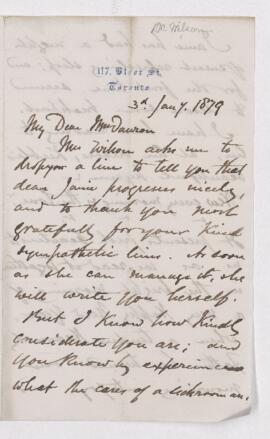 Dr Wilson
117. Bloor St.
Toronto
3d Jany. 1879
My Dear Mrs Dawson
Mrs Wilson asks me to
drop you a line to tell you that
dear Janie progresses nicely,
and to thank you most
gratefully for your kind
sympathetic lines. As soon
as she can manage it, she
will write you herself.
But I know how kindly
considerate you are; and
you know by experience
what the cares of a sickroom are.